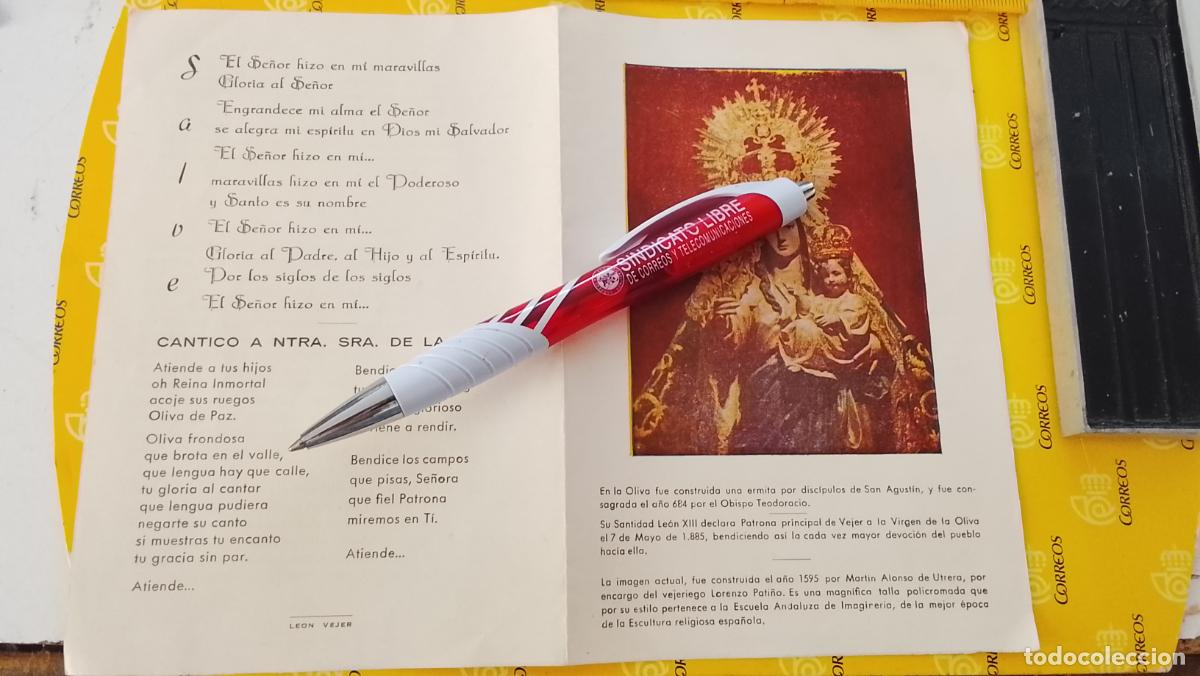 Salve
El Señor hizo en mí maravillas
Gloria al Señor
Engrandece mi alma el Señor
se alegra mi espíritu en Dios mi Salvador
El Señor hizo en mí...
maravillas hizo en mí el Poderoso
y Santo es su nombre
El Señor hizo en mí...
Gloria al Padre, al Hijo y al Espíritu.
Por los siglos de los siglos
El Señor hizo en mí...
CANTICO A NTRA. SRA. DE LA
Atiende a tus hijos
oh Reina Inmortal
acoje sus ruegos
Oliva de Paz.
Oliva frondosa
que brota en el valle,
que lengua hay que calle,
tu gloria al cantar
que lengua pudiera
negarte su canto
si muestras tu encanto
tu gracia sin par.
Atiende...
Bendice los campos
que pisas, Señora
que fiel Patrona
miremos en Tí.
Atiende...
LEON VEJER
En la Oliva fue construida una ermita por discípulos de San Agustín, y fue con-
sagrada el año 684 por el Obispo Teodoracio.
Su Santidad León XIII declara Patrona principal de Vejer a la Virgen de la Oliva
el 7 de Mayo de 1.885, bendiciendo así la cada vez mayor devoción del pueblo
hacia ella.
La imagen actual, fue construida el año 1595 por Martín Alonso de Utrera, por
encargo del vejeriego Lorenzo Patiño. Es una magnífica talla policromada que
por su estilo pertenece a la Escuela Andaluza de Imaginería, de la mejor época
de la Escultura religiosa española.
SINDICATO LIBRE
DE CORREOS Y TELECOMUNICACIONES
CORREOS
CORREOS
CORREOS
CORREOS
CORREOS
CORREOS
CORREOS
CORREOS
todocoleccion